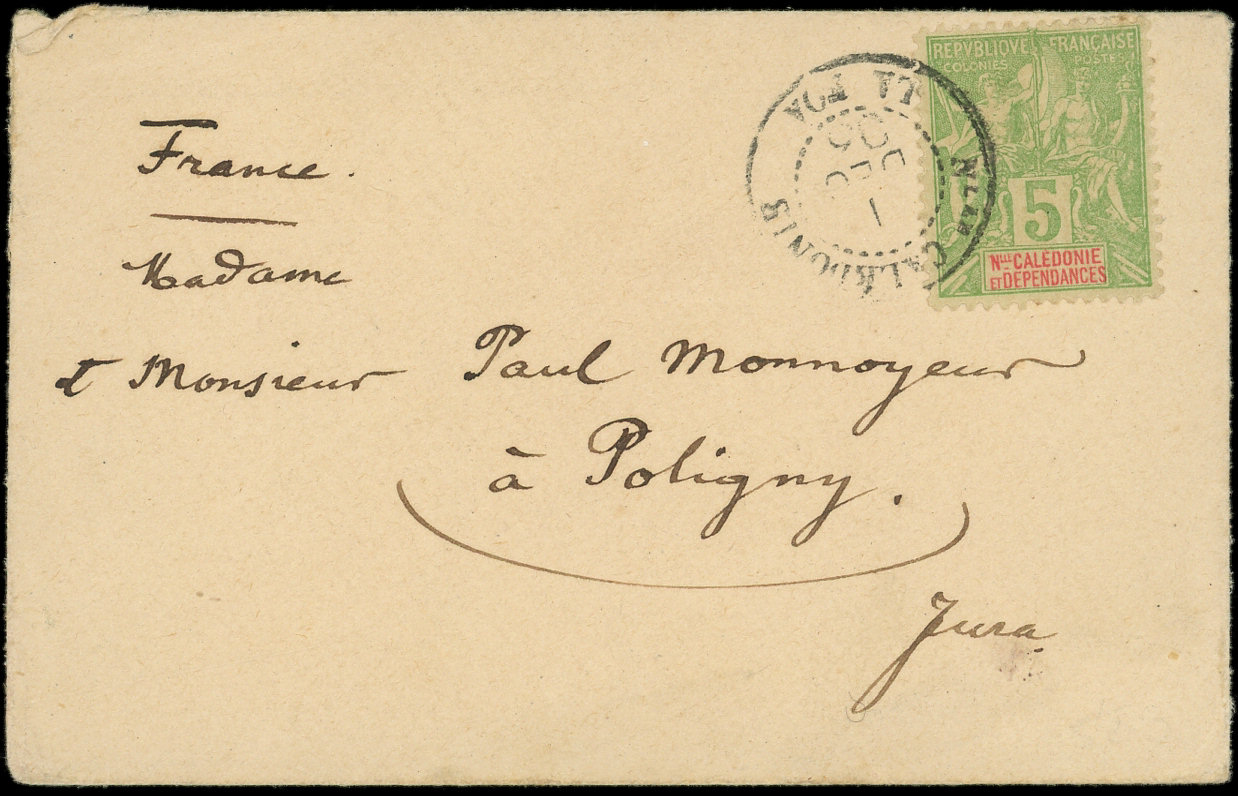 REPVBLIQVE FRANÇAISE
COLONIES POSTES
5
Nlle CALÉDONIE
ET DÉPENDANCES
LA FOA
1
DEC
Nlle CALEDONIE
France.
Madame
& Monsieur Paul Monnoyeur
à Poligny.
Jura